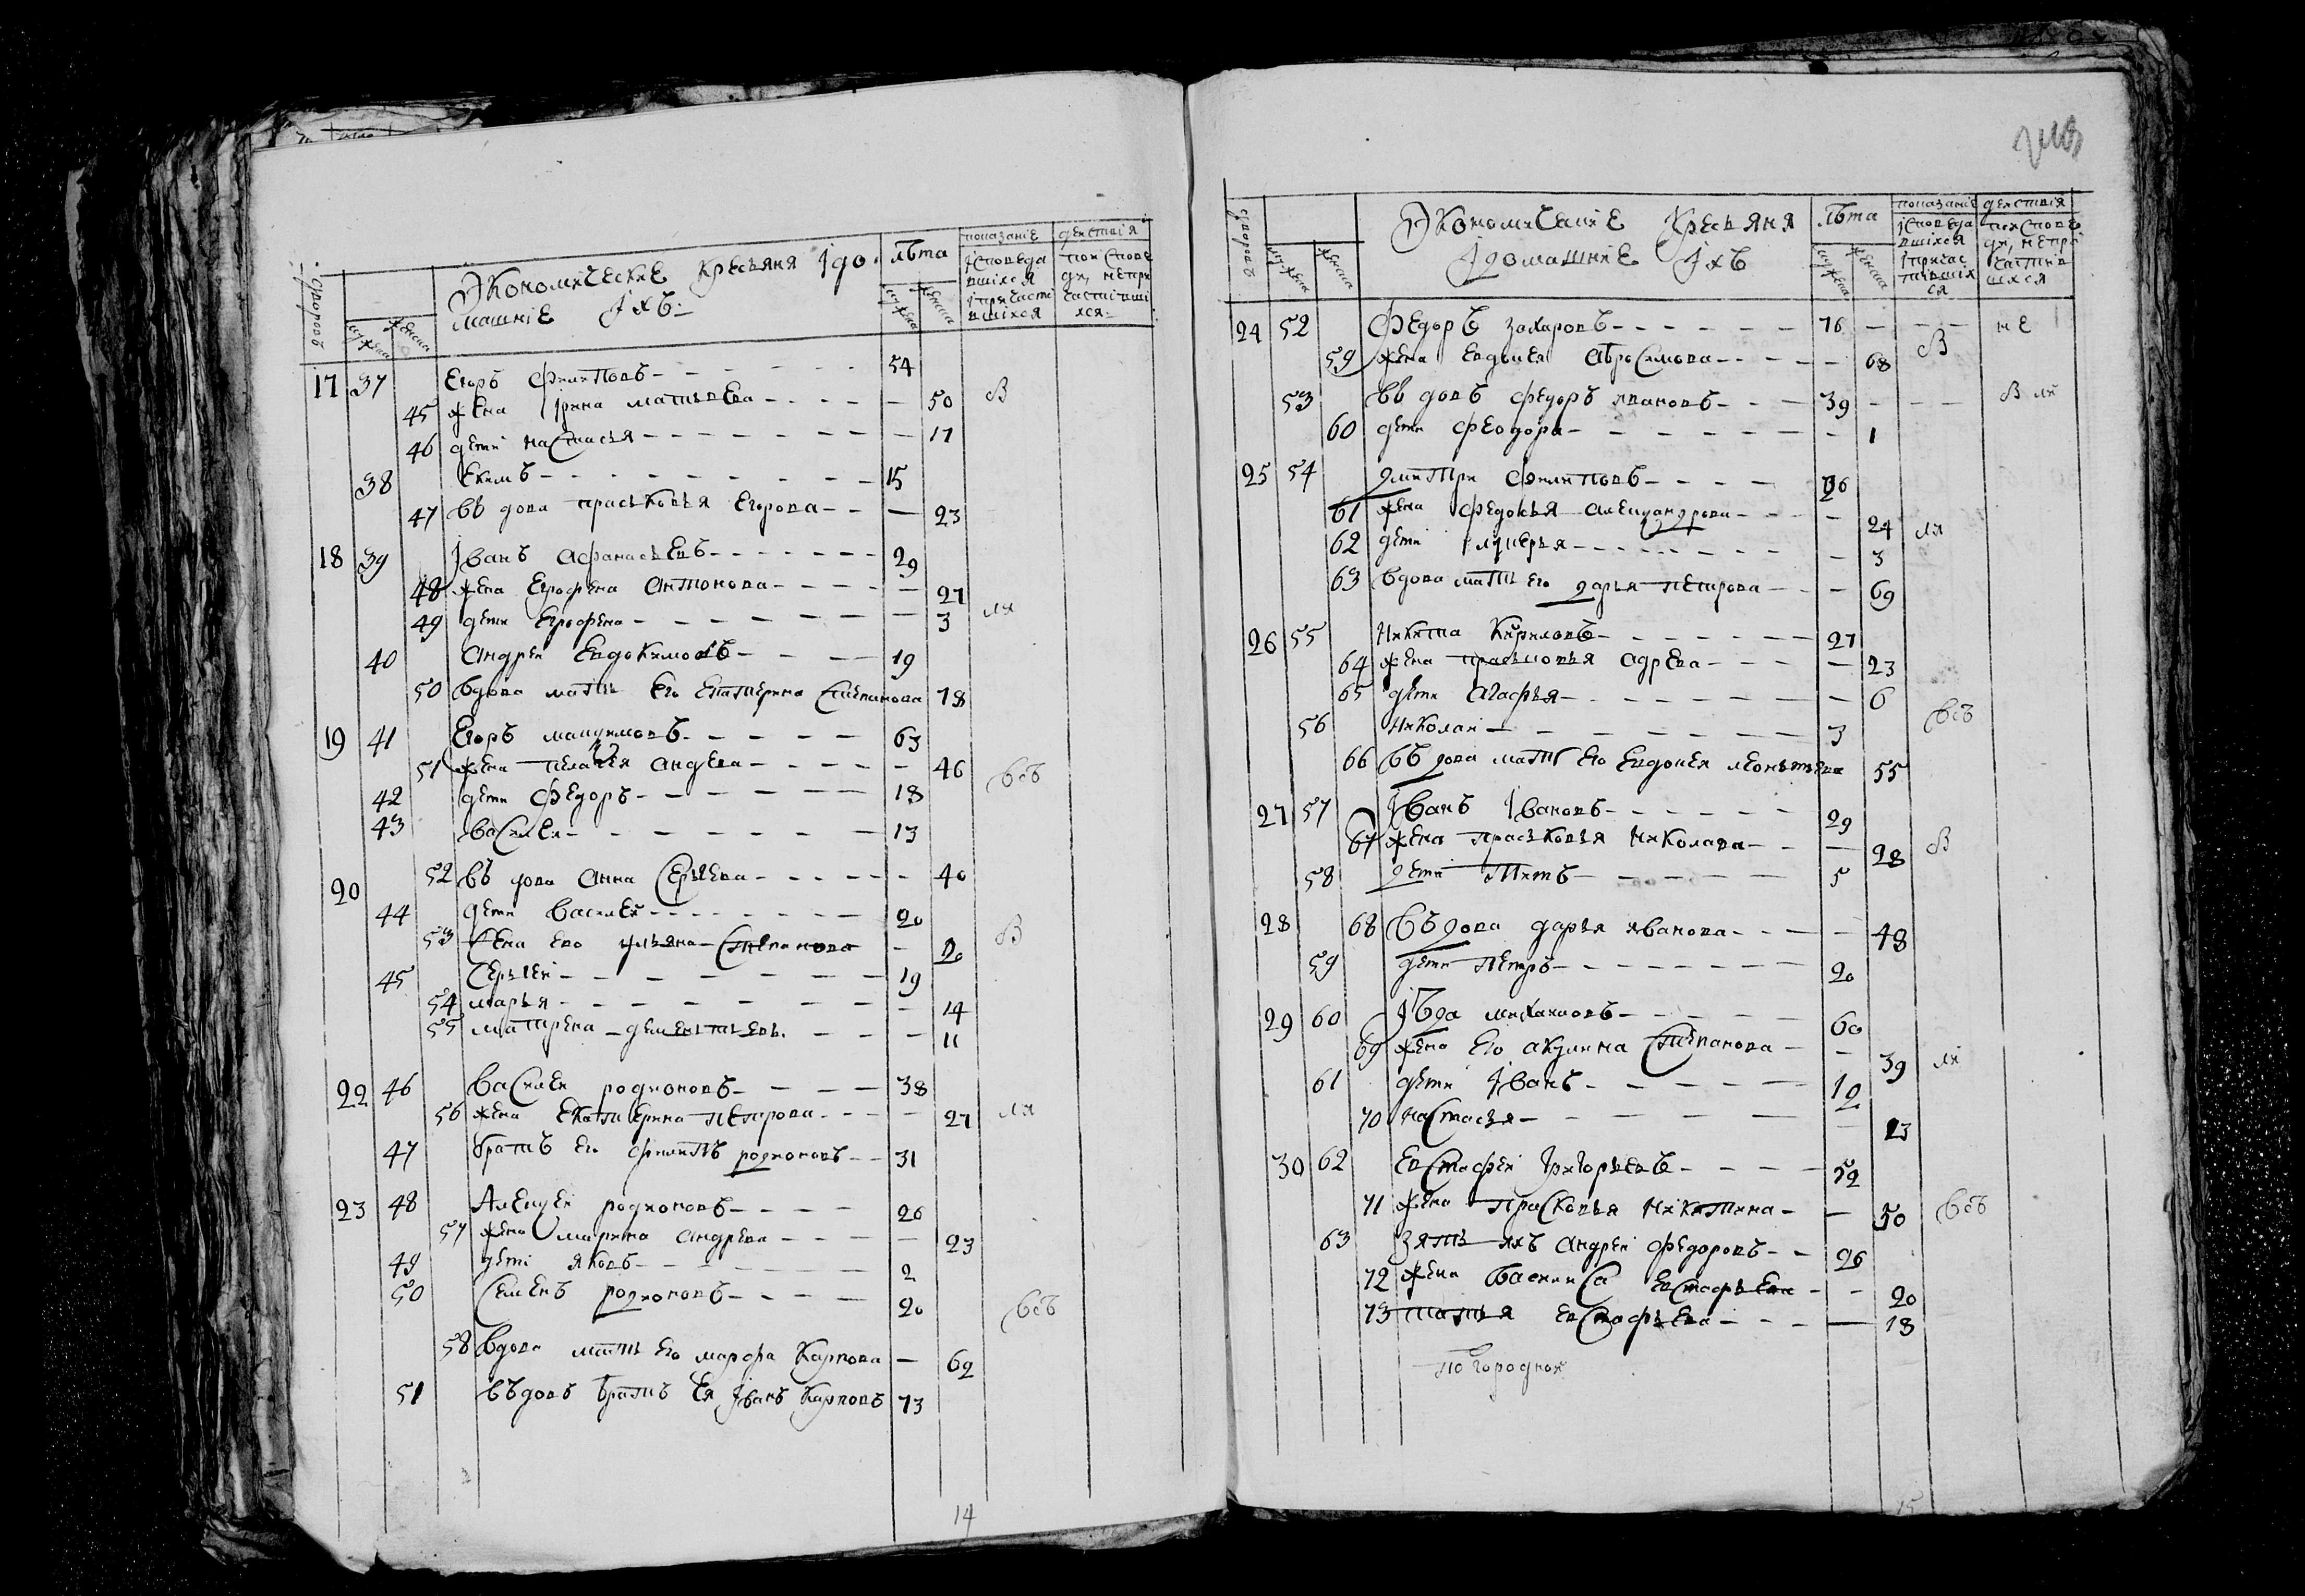 дворовъ
мужеска
женска
Экономические кресьяня ідо
машніе іхъ
лѣта
мужеска
женска
показаніе
дѣиствія
ісповеда
вшіхся
іпричасти
вшіхся
поисповѣ
ди, непри
частивши
хся
17 37 Егоръ филиповъ 54
45 жена Ірина матвѣева 50 в
46 дети настасья 17
38 Екимъ 15
47 въ дова праськовья Егорова 23
18 39 Іванъ афанасьевъ 29
48 жена Ерофена антонова 27
49 дети Ерофена 3 ля
40 андреи Евдокимовъ 19
50 вдова мать Его Екатерина степанова 78
19 41 Егоръ
51 жена пелагея андева 46 всѣ
42 дети федоръ 18
43 василеи 13
20 52 въ дова анна сергѣева 40
44 дети василеи 20 в
53 жена ево ульяна степанова 20
45 сергѣеи 19
54 марья 14
55 матрена дементьева 11
22 46 василеи родионовъ 38
56 жена Екатерина петрова 27 ля
47 братъ Его филипъ родионовъ 31
23 48 Алексеи родионовъ 26
57 жена марина андрева 23
49 дети яковъ 2
50 семенъ родионовъ 20
58 вдова мать Его марфа карпова 62 всѣ
51 въдовъ братъ Ея Іванъ карповъ 73
14
дворовъ
мужеска
женска
Экономические кресьяня
ідомашние іхъ
лѣта
мужеска
женска
показаніе
дѣиствія
ісповеда
вшіхся
іпричас
тившіх
ся
поисповѣ
ди, непри
частив
шихся
24 52 федоръ захаровъ 76 не
59 жена Евдокея абросимова 68 в
53 въ довъ федоръ ивановъ 39 в ли
60 дети феодора 1
25 54 дмитри филиповъ 36
61 жена федосья александрова 24 ля
62 дети лукерья 3
63 вдова мать его дарья петрова 69
26 55 никита кириловъ 27
64 жена прасковья адрева 23
65 дети агафья 6
56 николаи 3 всѣ
66 въ дова мать Его Евдокея леонтьева 55
27 57 Іванъ Івановъ 29
67 жена праськовья николава 28 в
58 дети титъ 5
28 68 въдова дарья иванова 48
59 дети петръ 20
29 60 михаиловъ 60
69 жена Его акулина степанова 39 ли
61 дети Іванъ 12
70 настасья 13
30 62 Евстафеи григорьевъ 52
71 жена прасковья никитина 50 всѣ
63 зять ихъ андреи федоровъ 26
72 жена василиса Евстафьева 20
73 татья Евстафьева 18
15